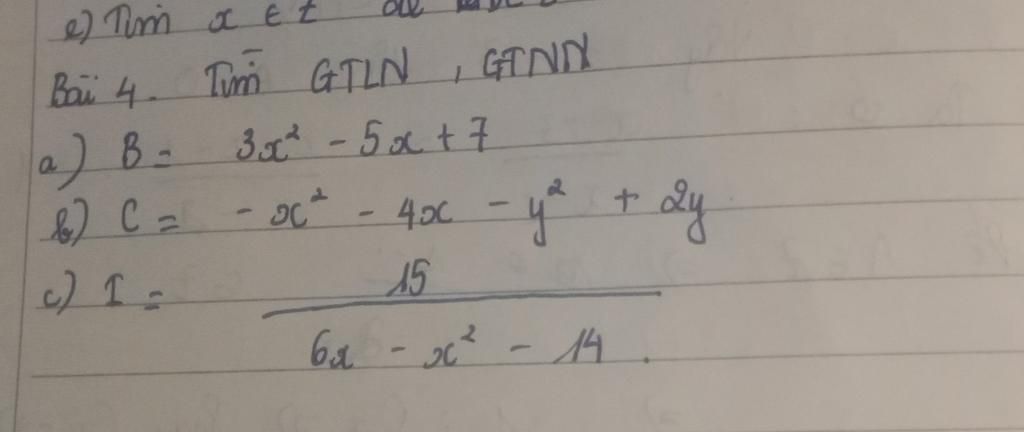 e) Tìm x ∈ Z để
Bài 4. Tìm GTLN, GTNN
a) B = 3x² - 5x + 7
b) C = - x² - 4x - y² + 2y
c) I = 15
6x - x² - 14.